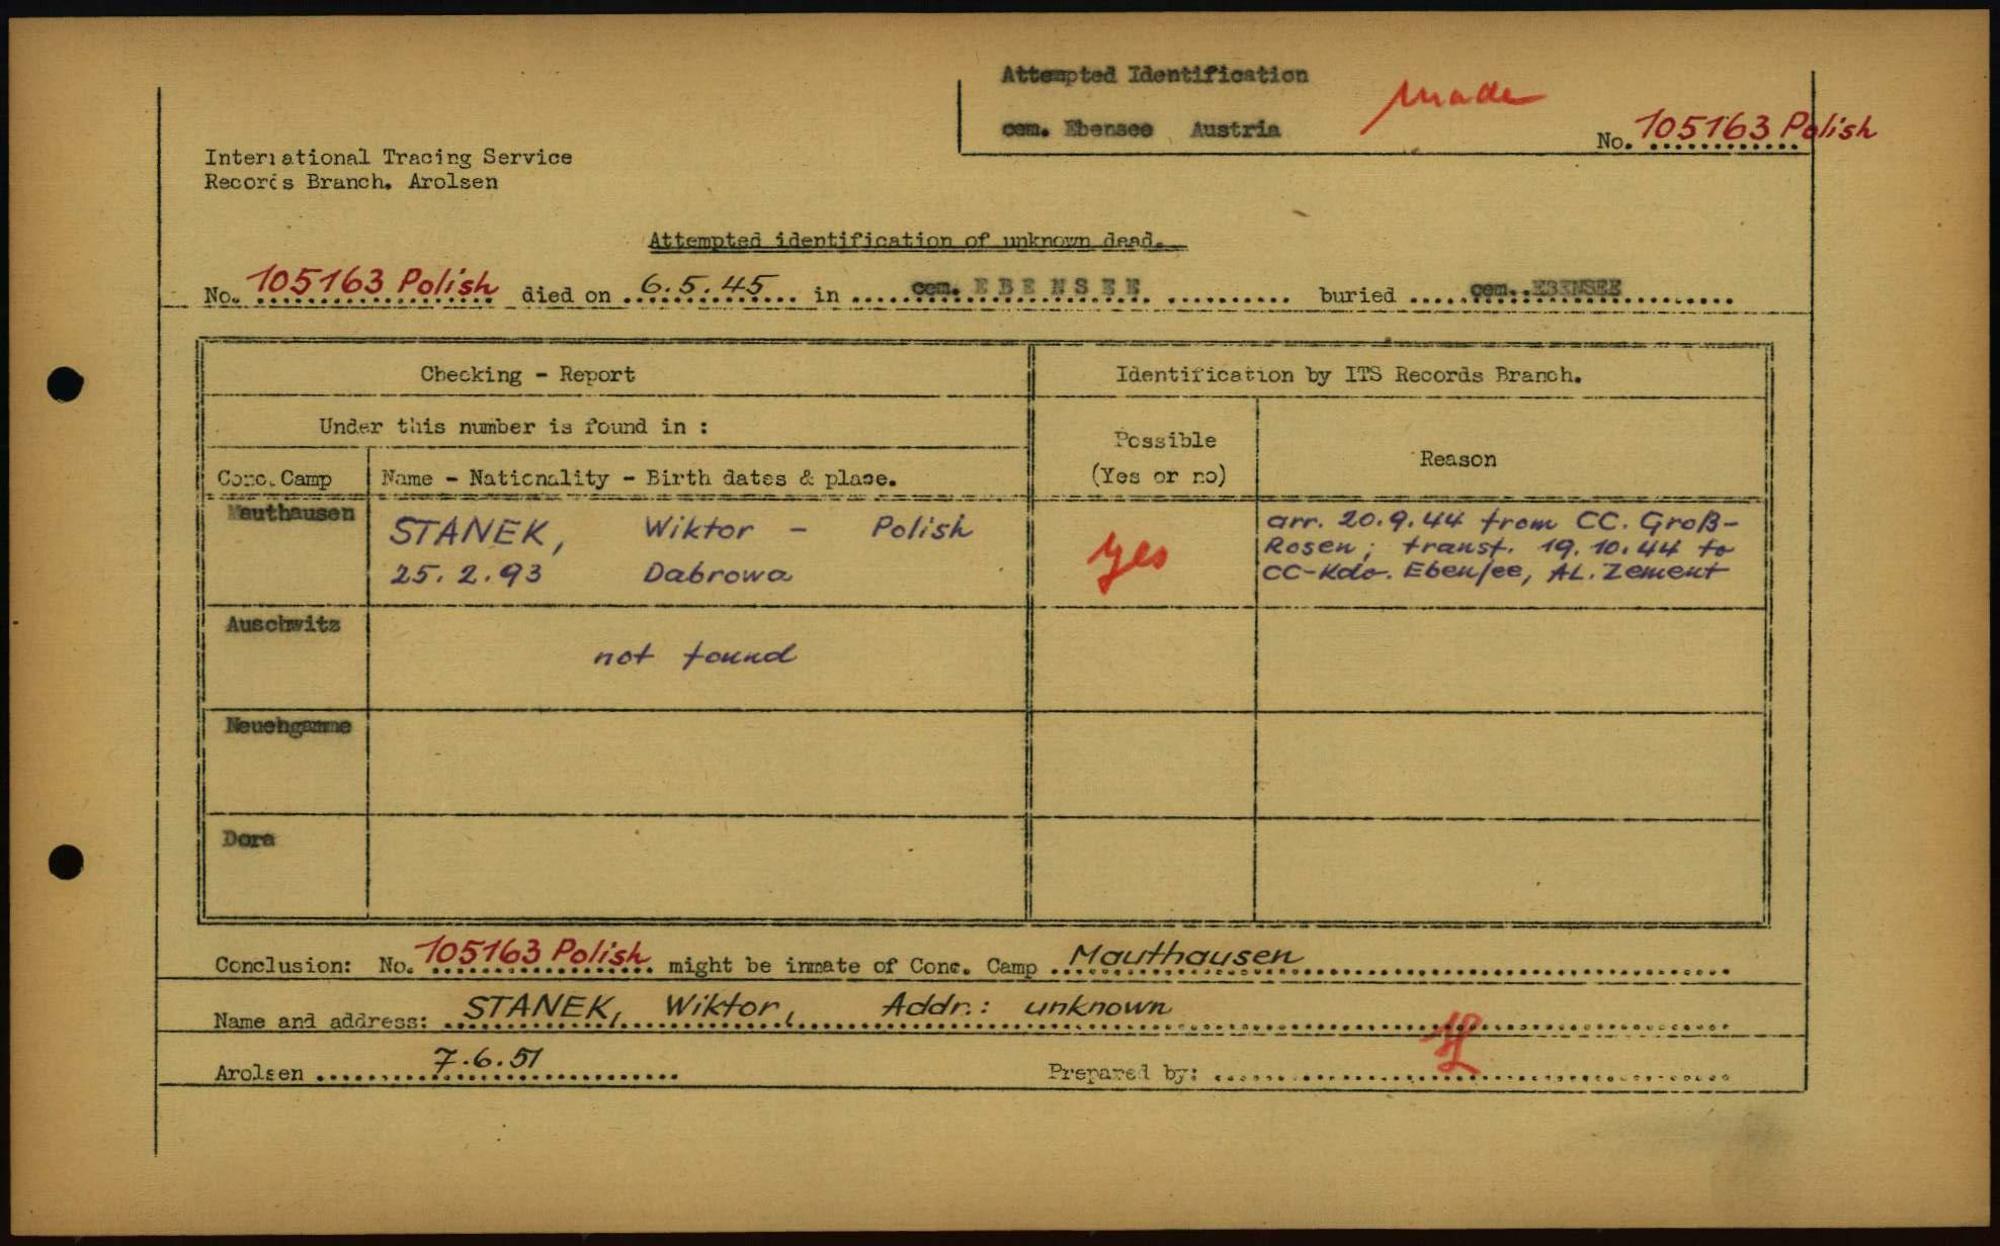 Attempted Identification
made
cem. Ebensee Austria
No. 105163 Polish
International Tracing Service
Records Branch. Arolsen
Attempted identification of unknown dead.
No. 105163 Polish died on 6.5.45 in cem. EBENSEE buried cem. EBENSEE
Checking - Report
Identification by ITS Records Branch.
Under this number is found in :
Possible
(Yes or no)
Reason
Conc. Camp
Name - Nationality - Birth dates & place.
Mauthausen
STANEK, Wiktor - Polish
25.2.93 Dabrowa
yes
arr. 20.9.44 from CC. Groß-
Rosen; transf. 19.10.44 to
CC-Kdo. Ebensee, AL. Zement
Auschwitz
not found
Neuengamme
Dora
Conclusion: No. 105163 Polish might be inmate of Conc. Camp Mauthausen
Name and address: STANEK, Wiktor, Addr.: unknown
Arolsen 7.6.51
Prepared by: